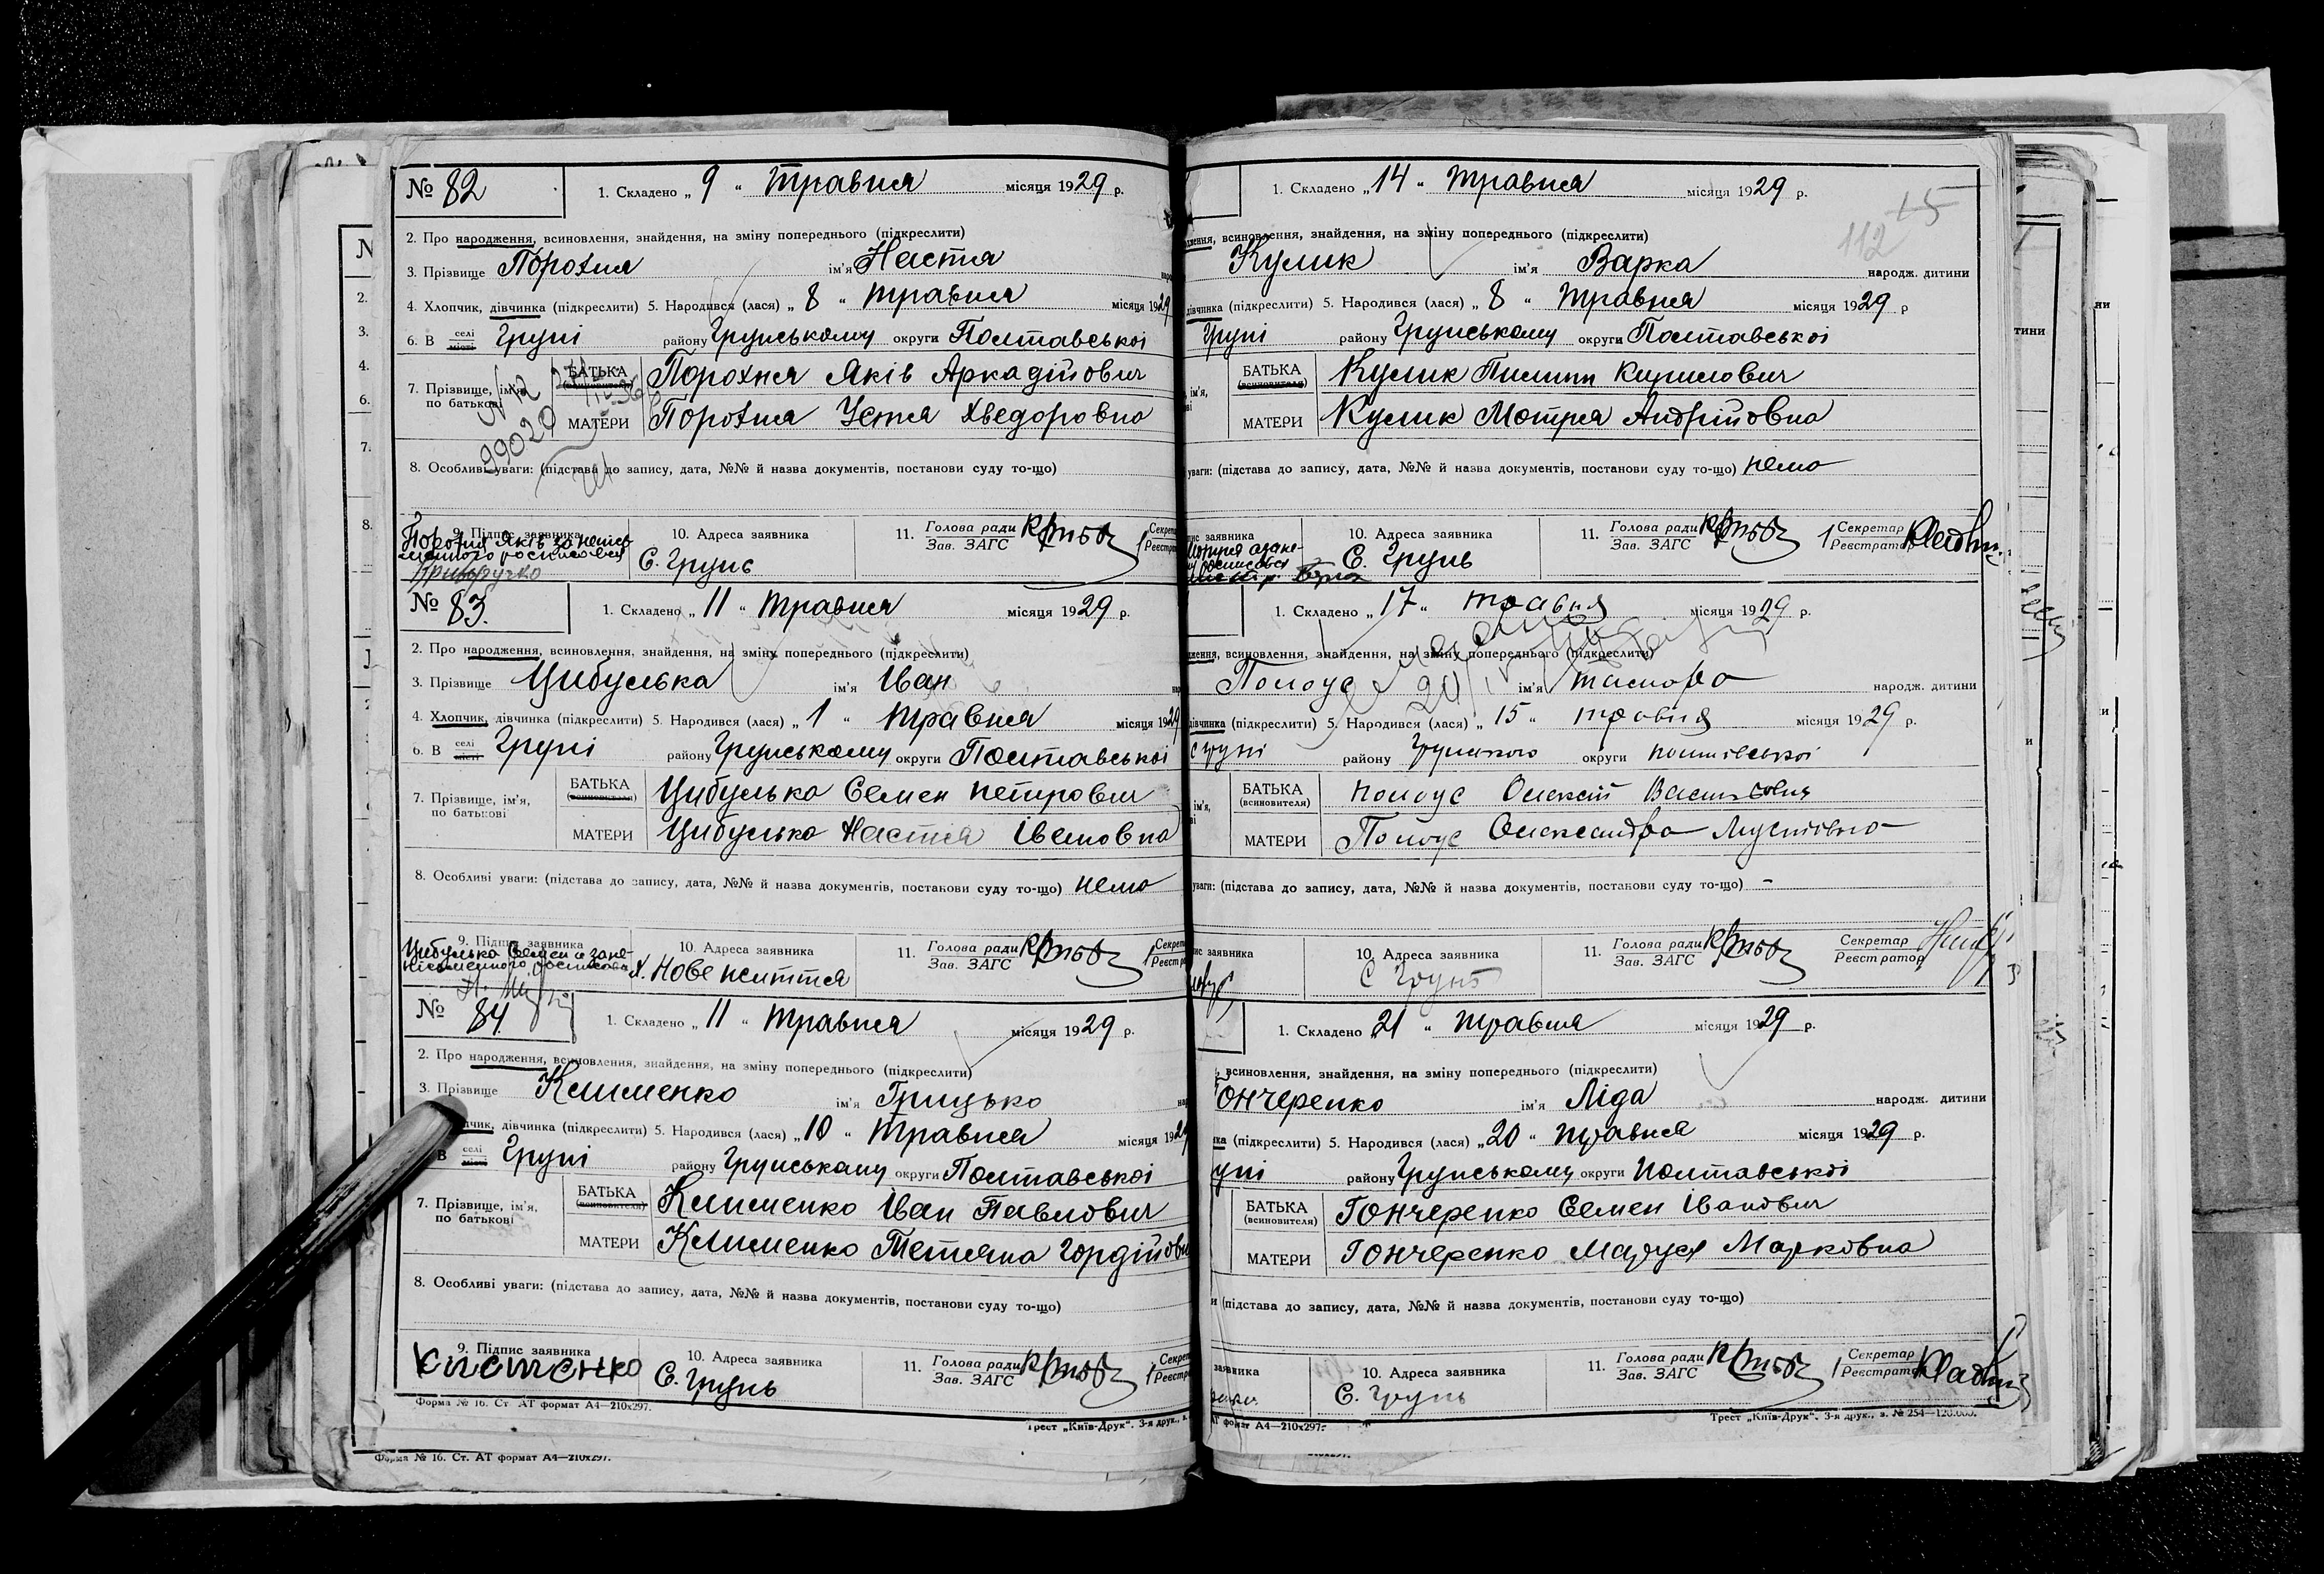 № 82
1. Складено „ 9 “ травня місяця 1929 р.
2. Про народження, всиновлення, знайдення, на зміну попереднього (підкреслити)
3. Прізвище Порохня ім'я Настя
4. Хлопчик, дівчинка (підкреслити) 5. Народився (лася) „ 8 “ травня місяця 1929
6. В селі місті Груні району Грунському округи Полтавської
7. Прізвище, ім'я, по батькові
БАТЬКА (всиновителя) Порохня Яків Аркадійович
МАТЕРИ Порохня Устя Хведоровна
99020
8. Особливі уваги: (підстава до запису, дата, №№ й назва документів, постанови суду то-що)
9. Підпис заявника
Порохня Яків за непись-
менного росписався
10. Адреса заявника
С. Грунь
11. Голова ради Зав. ЗАГС
№ 83.
1. Складено „ 11 “ травня місяця 1929 р.
2. Про народження, всиновлення, знайдення, на зміну попереднього (підкреслити)
3. Прізвище Цибулька ім'я Іван
4. Хлопчик, дівчинка (підкреслити) 5. Народився (лася) „ 1 “ травня місяця 1929
6. В селі місті Груні району Грунському округи Полтавської
7. Прізвище, ім'я, по батькові
БАТЬКА (всиновителя) Цибулько Семен Петрович
МАТЕРИ Цибулько Настя Івановна
8. Особливі уваги: (підстава до запису, дата, №№ й назва документів, постанови суду то-що) нема
9. Підпис заявника
Цибулько Семен а за не-
письменного росписався
10. Адреса заявника
х. Нове життя
11. Голова ради Зав. ЗАГС
№ 84
1. Складено „ 11 “ травня місяця 1929 р.
2. Про народження, всиновлення, знайдення, на зміну попереднього (підкреслити)
3. Прізвище Клименко ім'я Грицько
чик, дівчинка (підкреслити) 5. Народився (лася) „ 10 “ травня місяця 1929
В селі місті Груні району Грунському округи Полтавської
7. Прізвище, ім'я, по батькові
БАТЬКА (всиновителя) Клименко Іван Павлович
МАТЕРИ Клименко Тетяна Гордійовн
8. Особливі уваги: (підстава до запису, дата, №№ й назва документів, постанови суду то-що)
9. Підпис заявника
Клименко
10. Адреса заявника
С. Грунь
11. Голова ради Зав. ЗАГС
Форма № 16. Ст. АТ формат А4—210х297.
Трест „Київ-Друк“. 3-я друк., з.
Форма № 16. Ст. АТ формат А4—210х297.
1. Складено „ 14 “ травня місяця 1929 р.
112
ження, всиновлення, знайдення, на зміну попереднього (підкреслити)
Кулик ім'я Варка народж. дитини
дівчинка (підкреслити) 5. Народився (лася) „ 8 “ травня місяця 1929 р
Груні району Грунському округи Полтавської
БАТЬКА (всиновителя) Кулик Пилип Кирилович
МАТЕРИ Кулик Мотря Андрійовна
уваги: (підстава до запису, дата, №№ й назва документів, постанови суду то-що) нема
заявника
10. Адреса заявника
С. Грунь
11. Голова ради Зав. ЗАГС
Секретар Реєстратор
1. Складено „ 17 “ травня місяця 1929 р.
ження, всиновлення, знайдення, на зміну попереднього (підкреслити)
Полоус ім'я народж. дитини
дівчинка (підкреслити) 5. Народився (лася) „ 15 “ травня місяця 1929 р.
Груні району Грунського округи полтавської
БАТЬКА (всиновителя) Полоус Олексій Васильович
МАТЕРИ Полоус Олександра
уваги: (підстава до запису, дата, №№ й назва документів, постанови суду то-що) -
заявника
10. Адреса заявника
С Грунь
11. Голова ради Зав. ЗАГС
Секретар Реєстратор
1. Складено „ 21 “ травня місяця 1929 р.
всиновлення, знайдення, на зміну попереднього (підкреслити)
Гончеренко ім'я Ліда народж. дитини
ка (підкреслити) 5. Народився (лася) „ 20 “ травня місяця 1929 р.
уні району Грунському округи Полтавської
БАТЬКА (всиновителя) Гончеренко Семен Іванович
МАТЕРИ Гончеренко Маруся Марковна
и (підстава до запису, дата, №№ й назва документів, постанови суду то-що)
заявника
10. Адреса заявника
С. Грунь
11. Голова ради Зав. ЗАГС
Секретар Реєстратор
АТ формат А4—210х297.
Трест „Київ-Друк“. 3-я друк., з. № 254—120.000.